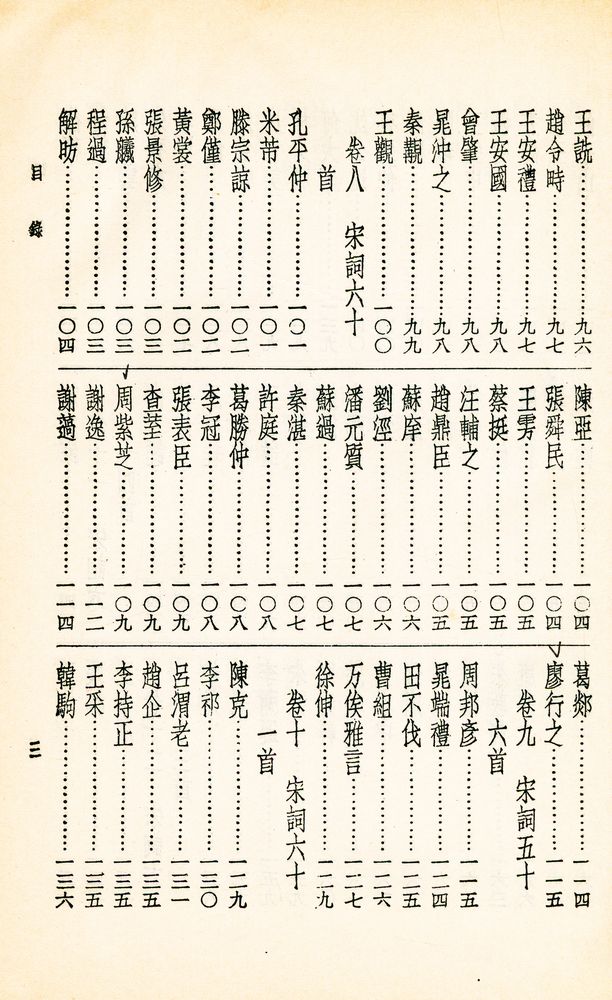 王詵⋯⋯九六
趙令畤⋯⋯九七
王安禮⋯⋯九七
王安國⋯⋯九八
曾肇⋯⋯九八
晁沖之⋯⋯九八
秦覯⋯⋯九九
王觀⋯⋯一〇〇
卷八 宋詞六十
首
孔平仲⋯⋯一〇一
米芾⋯⋯一〇一
滕宗諒⋯⋯一〇二
鄭僅⋯⋯一〇二
黃裳⋯⋯一〇二
張景修⋯⋯一〇三
孫艤⋯⋯一〇三
程過⋯⋯一〇三
解昉⋯⋯一〇四
陳亞⋯⋯一〇四
張舜民⋯⋯一〇四
王雱⋯⋯一〇五
蔡挺⋯⋯一〇五
汪輔之⋯⋯一〇五
趙鼎臣⋯⋯一〇五
蘇庠⋯⋯一〇六
劉涇⋯⋯一〇六
潘元質⋯⋯一〇七
蘇過⋯⋯一〇七
秦湛⋯⋯一〇七
許庭⋯⋯一〇八
葛勝仲⋯⋯一〇八
李冠⋯⋯一〇八
張表臣⋯⋯一〇九
查荎⋯⋯一〇九
周紫芝⋯⋯一〇九
謝逸⋯⋯一一二
謝薖⋯⋯一一四
葛郯⋯⋯一一四
廖行之⋯⋯一一五
卷九 宋詞五十
六首
周邦彥⋯⋯一一五
晁端禮⋯⋯一二四
田不伐⋯⋯一二五
曹組⋯⋯一二六
万俟雅言⋯⋯一二七
徐伸⋯⋯一二九
卷十 宋詞六十
一首
陳克⋯⋯一二九
李祁⋯⋯一三〇
呂渭老⋯⋯一三一
趙企⋯⋯一三五
李持正⋯⋯一三五
王寀⋯⋯一三五
韓駒⋯⋯一三六
目錄
三